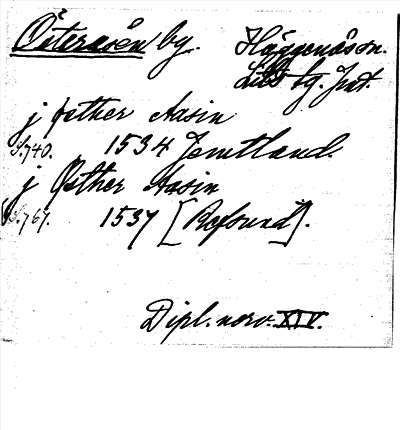 Österåsen by. Häggenåsen.
Lits tg. Jmt.
j østher Aasin
S. 740. 1534 Jemtland.
j Østher Aasin
S. 767. 1537 [Refsund].
Dipl. norv. XIV.